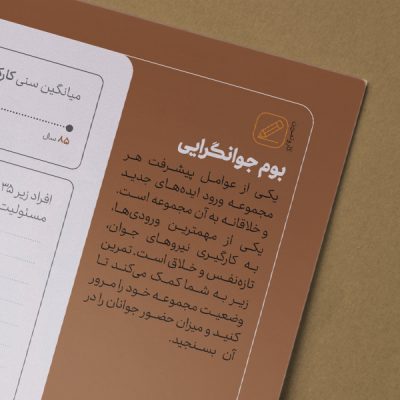 بوم جوانگرایی
یکی از عوامل پیشرفت هر
مجموعه ورود ایده‌های جدید
و خلاقانه به آن مجموعه است.
یکی از مهمترین ورودی‌ها،
به کارگیری نیروهای جوان،
تازه‌نفس و خلاق است. تمرین
زیر به شما کمک می‌کند تا
وضعیت مجموعه خود را مرور
کنید و میزان حضور جوانان را در
آن بسنجید.
میانگین سنی
۸۵ سال
افراد زیر ۳۵
مسئولیت